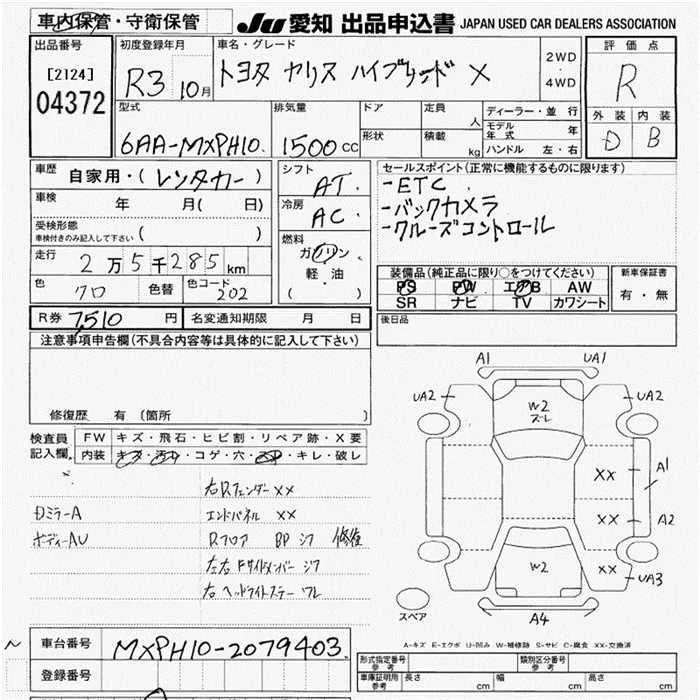 車内保管・守衛保管
JU 愛知 出品申込書 JAPAN USED CAR DEALERS ASSOCIATION
出品番号
[2124]
04372
初度登録年月
R3 10月
車名・グレード
トヨタ ヤリス ハイブリッド X
2WD
・
4WD
評価点
R
外装 内装
D B
型式
6AA-MXPH10
排気量
1500cc
ドア
形状
定員 人
積載 kg
ディーラー・並行
モデル年式 年
ハンドル 左・右
車歴
自家用・(レンタカー)
車検
年 月( 日)
受検形態
車検付きのみ記入して下さい ( )
走行
2万5千285km
色
クロ
色替
色コード
202
シフト
AT
冷房
AC
燃料
ガソリン
軽・油
( )
セールスポイント(正常に機能するものに限ります)
-ETC
-バックカメラ
-クルーズコントロール
装備品(純正品に限り○をつけてください)
PS PW エアB AW
SR ナビ TV カワシート
新車保証書
有・無
R券 7,510 円
名変通知期限 月 日
後日品
注意事項申告欄(不具合内容等は具体的に記入して下さい)
修復歴 有 (箇所 )
検査員記入欄
FW キズ・飛石・ヒビ割・リペア跡・X要
内装 キズ・汚れ・コゲ・穴・・キレ・破レ
右R.フェンダーXX
DミラーA
エンドパネル XX
ボディーAU
Rフロア BP シワ 修復
左右Fサイドメンバー シワ
右ヘッドライトステー ワレ
A1 UA1
UA2 UA2
W2
ズレ
XX A1
XX A2
W2 XX UA3
A4
スペア
A-キズ E-エクボ U-凹み W-補修跡 S-サビ C-腐食 XX-交換済
車台番号
MXPH10-2079403.
登録番号
形式指定番号
参考
類別区分番号
参考
車庫証明用
参考
長さ cm 幅 cm 高さ cm